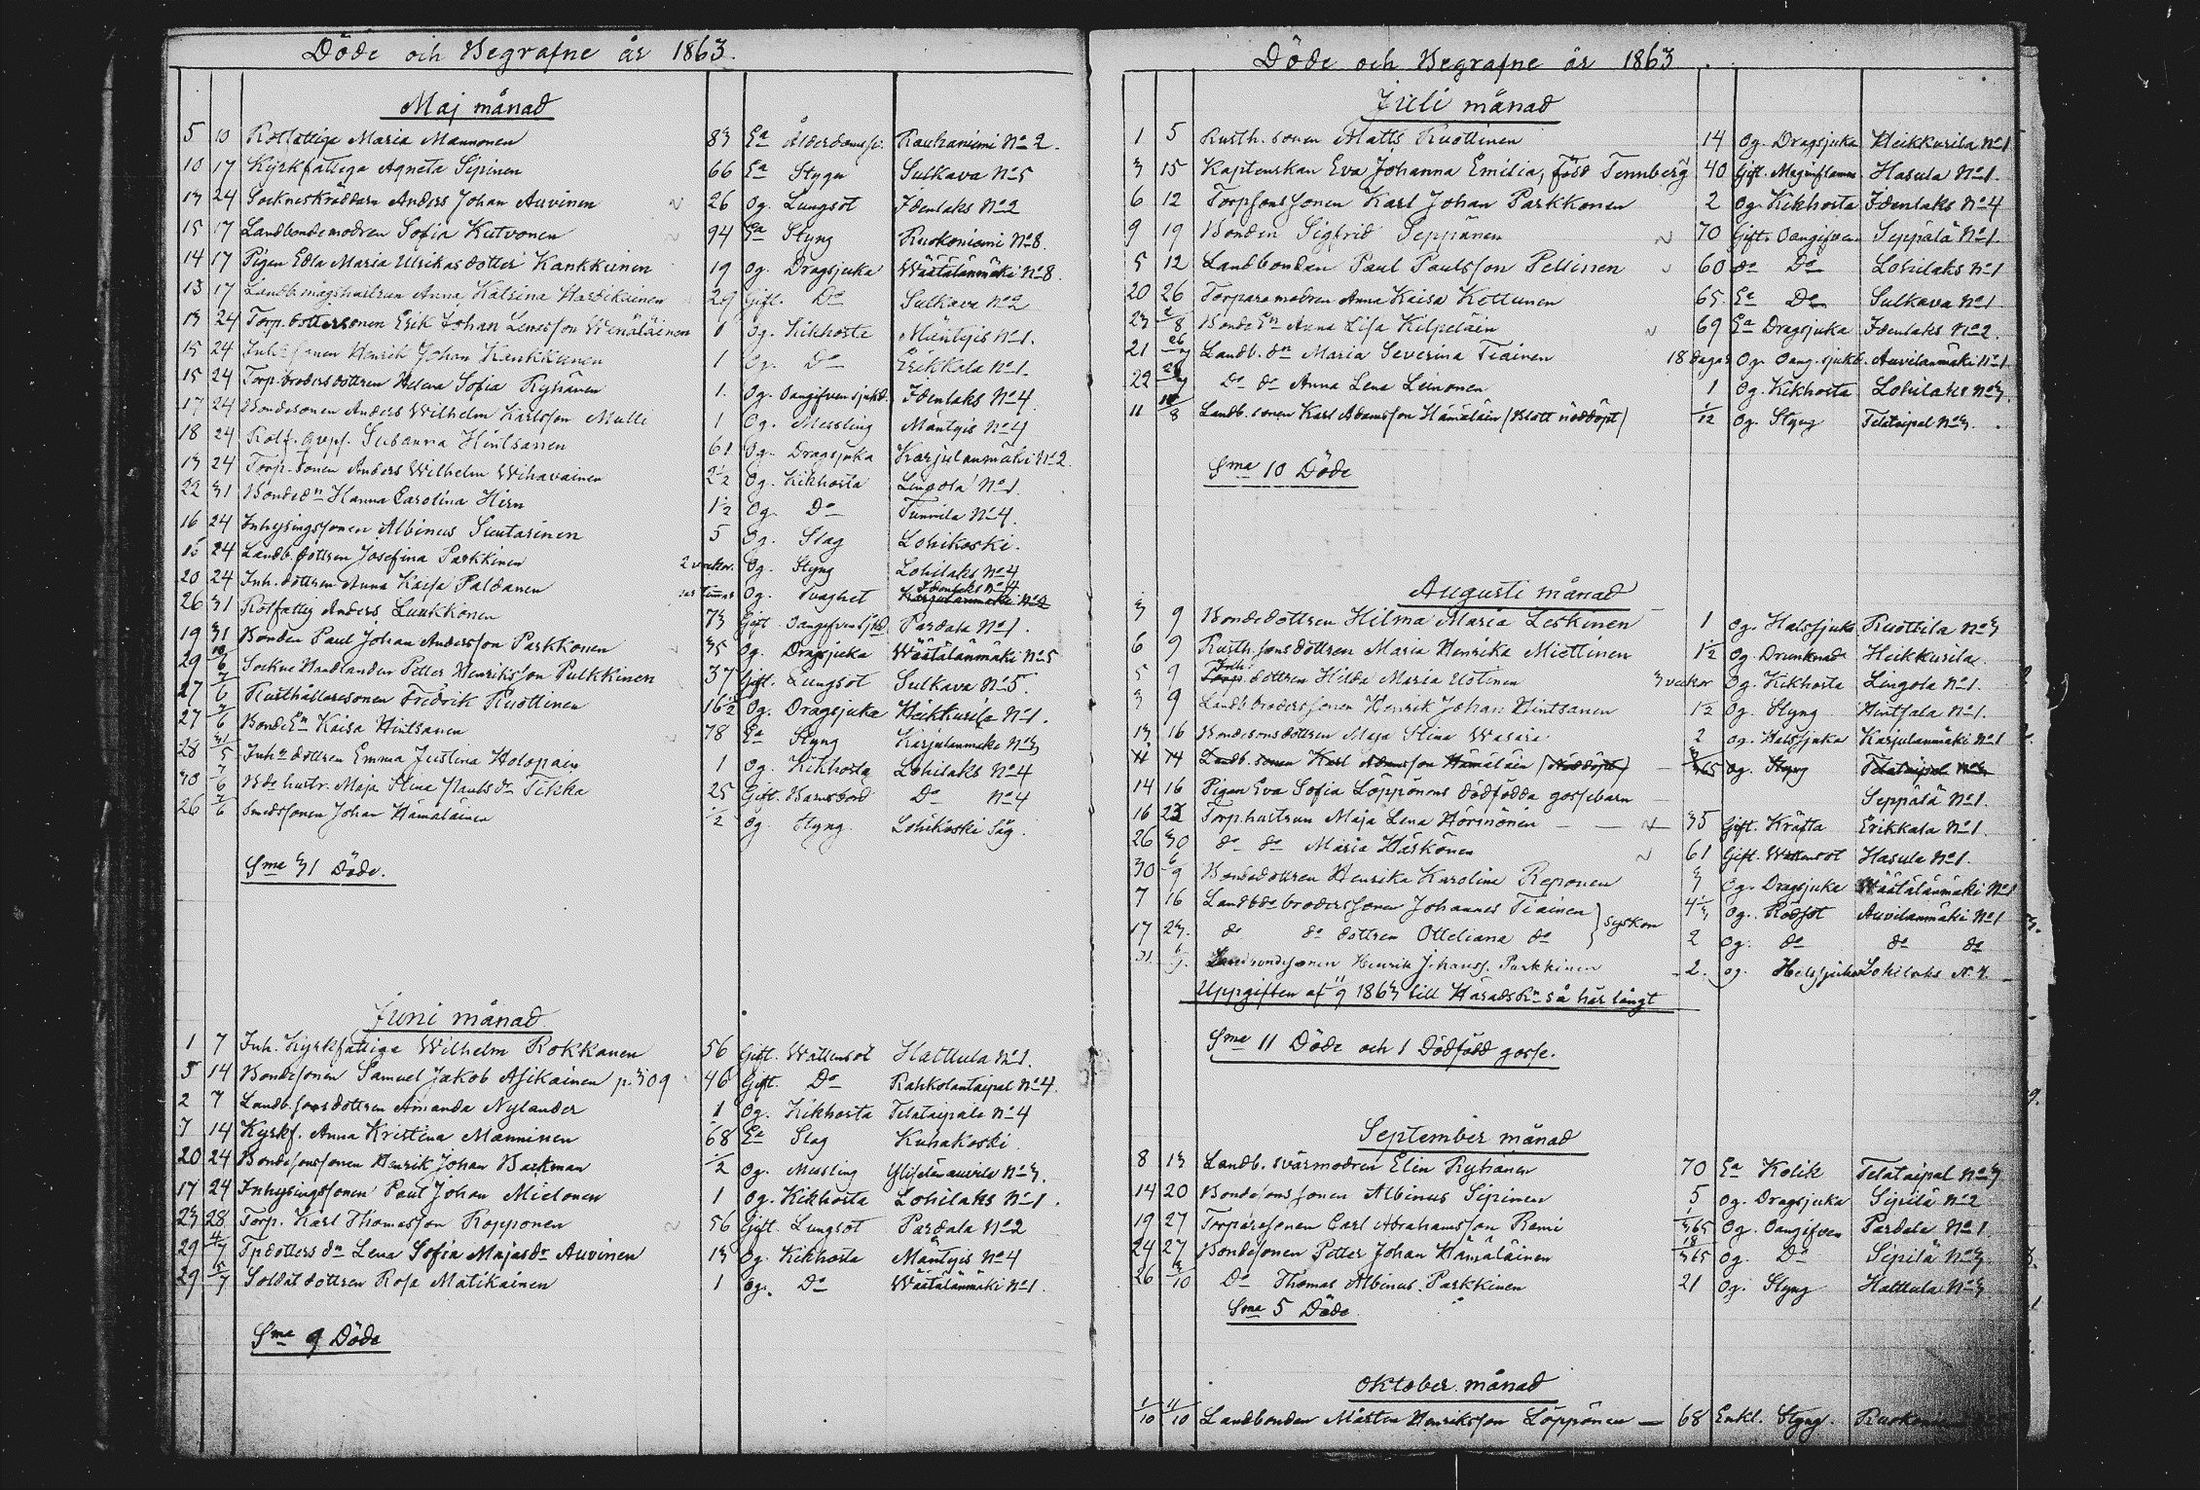 Döde och Begrafne år 1863.
Maj månad
5 10 Rotfattiga Maria Mannonen 83 Ea Ålderdomssv. Rauhaniemi No 2.
10 17 Kyrkfattiga Agneta Sipinen 66 Ea Styng Sulkava No 5
13 24 Sockneskräddaren Anders Johan Auvinen 26 Og. Lungsot Idenlaks No 2
15 17 Landbonde modren Sofia Kutvonen 94 Ea Styng Ruokoniemi No 8.
14 17 Pigan Edla Maria Ulrikas dotter Kankkunen 19 Og. Dragsjuka Wäätälänmäki No 8.
13 17 Landb. mågshustrun Anna Katrina Hardikainen 29 Gift. Do Sulkava No 2
13 24 Torp. dottersonen Erik Johan Wenäläinen 1 Og. Kikhosta Mäntyis No 1.
15 24 Inhs sonen Henrik Johan Kankkunen 1 Og. Do Erikkala No 1.
15 24 Torp. broders dottren Helena Sofia Ryhänen 1. Og. Oangifven sjukd. Idenlaks No 4
17 24 Bondesonen Anders Wilhelm Karlsson Mulli 1 Og. Messling Mäntyis No 4
18 24 Rotf. Susanna Hintsanen 61 Og. Dragsjuka Karjulanmäki No 2.
13 24 Torp. sonen Anders Wilhelm Wihavainen 2 1/2 Og. Kikhosta Lingola No 1.
22 31 Bonde dn Hanna Carolina Hirn 1 1/2 Og. Do Tunnila No 4.
16 24 Inhysingssonen Albinus Suutarinen 5 Og. Slag Lohikoski.
15 24 Landb. dottren Josefina Parkkinen 2 veckor. Og. Styng Lohilaks No 4
20 24 Inh. dottren Anna Kaisa Paldanen Og. Svaghet Idenlaks No 4 Karjulanmäki No 2
26 31 Rotfattig Anders Luukkonen 73 Gift Oangifven sjkd. Pardala No 1.
19 31 Bonden Paul Johan Andersson Parkkonen 35 Og. Dragsjuka Wäätälänmäki No 5
29 10/6 Sockne Handlanden Petter Henriksson Pulkkinen 37 Gift. Lungsot Sulkava No 5.
27 7/6 Rusthållaresonen Fredrik Ruottinen 16 1/2 Og. Dragsjuka Heikkurila No 1.
27 7/6 Bonde En Kaisa Hintsanen 78 Ea Styng Karjulanmäki No 3
28 31/5 Inhs dottren Emma Justina Holopain 1 Og. Kikhosta Lohilaks No 4
30 7/6 Bde hustr. Maja Stina Paulsdr Tikka 25 Gift. Barnsbörd Do No 4
26 7/6 Smedssonen Johan Hämäläinen 1/2 Og Styng Lohikoski Såg.
Sma 31 Döde.
Juni månad
1 7 Inh. Kyrkfattiga Wilhelm Rokkanen 56 Gift. Wattusot Hattula No 1.
5 14 Bondesonen Samuel Jakob Asikainen p. 309 46 Gift. Do Rahkolantaipal No 4.
2 7 Landb. sonsdottren Amanda Nylander 1 Og. Kikhosta Telataipale No 4
7 14 Kyrkf. Anna Kristina Manninen 68 Ea Slag Kuhakoski
20 24 Bondesonssonen Henrik Johan Backman 1/2 Og. Messling No 3.
17 24 Inhysingssonen Paul Johan Mielonen 1 Og. Kikhosta Lohilaks No 1.
23 28 Torp. Karl Thomasson Ropponen 56 Gift. Lungsot Pardala No 2
29 4/7 Tpdotters dn Lena Sofia Majasdr Auvinen 13 Og. Kikhosta Mäntyis No 4
29 5/7 Soldat dottren Rosa Matikainen 1 Og. Do Wäätälänmäki No 1.
Sma 9 Döda
Döde och Begrafne år 1863.
Juli månad
1 5 Rusth. sonen Matts Ruottinen 14 Og. Dragsjuka Heikkurila No 1
3 15 Kaptenskan Eva Johanna Emilia, född Tennberg 40 Gift. Maginflamm Hasula No 1.
6 12 Torpsonssonen Karl Johan Parkkonen 2 Og. Kikhosta Idenlaks No 4
9 19 Bonden Sigfrid Seppänen 70 Gift. Oangifven Seppälä No 1.
5 12 Landbonden Paul Paulsson Pellinen 60 do Do Lohilaks No 1
20 26 Torpare modren Anna Kaisa Kettunen 65. Ea Do Sulkava No 1.
23 2/8 Bonde En Anna Lisa Kilpeläin 69 Ea Dragsjuka Idenlaks No 2.
21 26/7 Landb. dn Maria Severina Tiainen 18 dagar Og. Oang. sjukd. Auvilanmäki No 1
22 26/7 Do do Anna Lena Leinonen 1 Og. Kikhosta Lohilaks No 3.
11 10/8 Landb. sonen Karl Adamsson Hämäläin (Blott nöddöpt) 1/12 Og. Styng Telataipal No 3.
Sma 10 Döde
Augusti månad
3 9 Bondedottren Hilma Maria Leskinen 1 Og. Halssjuka Ruottila No 3
6 9 Rusth. sons dottren Maria Henrika Miettinen 1 1/2 Og. Drunknad Heikkurila
5 9 Torp. Inh. dottren Hilda Maria Uotinen 3 veckor Og. Kikhosta Lingola No 1.
3 9 Landb. broderssonen Henrik Johan Hintsanen 1 1/2 Og. Styng Hintsala No 1.
13 16 Bondesonsdottren Maja Stina Wasara 2 Og. Halssjuka Karjulanmäki No 1
11 14 Landb. sonen Karl Adamsson Hämäläin (Nöddöpt) Og. Styng Telataipal No 3
14 16 Pigan Eva Sofia Löppönens dödfödda gossebarn Seppälä No 1.
16 23 Torp. hustrun Maja Lena Hörmönen 35 Gift. Kräfta Erikkala No 1.
26 30 do do Maria Häskönen 61 Gift. Wattusot Hasula No 1.
30 6/9 Bondedottren Henrika Karolina Reponen 3 Og. Dragsjuka Wäätälänmäki No 1
7 16 Landbde broderssonen Johannes Tiainen } syskon 4 1/3 Og. Rödsot Auvilanmäki No 1
17 23. do do dottren Otteliana do 2 Og. do do do
31. 6/9. Landbondesonen Henrik Johanss. Parkkinen 2. og. Halssjuka Lohilaks N. 4.
Uppgiften af 11/9 1863 till Häradsk:n så här långt
Sma 11 Döde och 1 Dödfödd gosse.
September månad
8 13 Landb. svärmodren Elin Ryhänen 70 Ea Kolik Telataipal No 3
14 20 Bondesonssonen Albinus Sipinen 5 Og. Dragsjuka Sipilä No 2
19 27 Torparesonen Carl Abrahamsson Rami 1/365 Og. Oangifven Pardala No 1.
24 27 Bondesonen Petter Johan Hämäläinen 18/365 Og. Do Sipilä No 3.
26 4/10 Do Thomas Albinus Parkkinen 21 Og. Styng Hattula No 3
Sma 5 Döde
Oktober månad
1/10 11/10 Landbonden Mårten Henriksson Löppönen 68 Enkl. Styng.